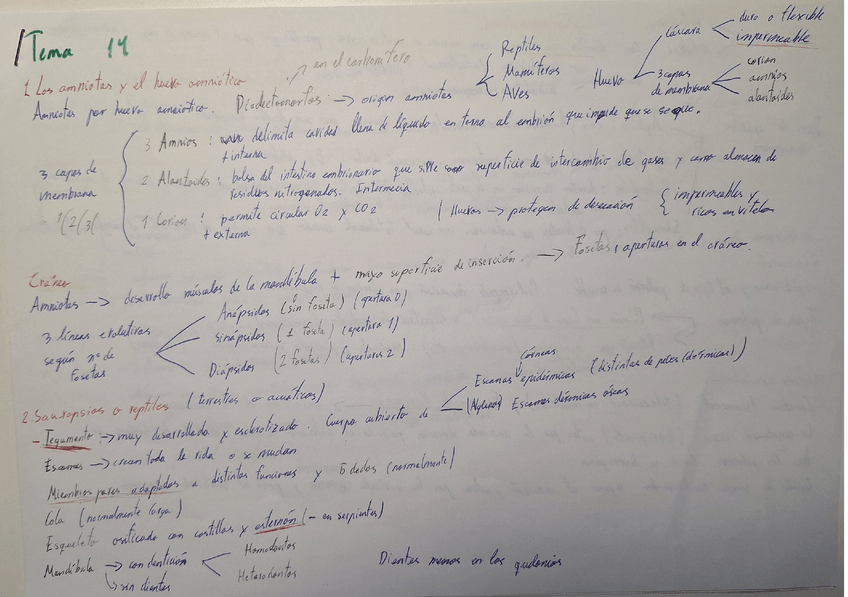 Tema 14
1. Los amniotas y el huevo amniótico
en el carbonífero
Amniotas por huevo amniótico. Diadectomorfos → origen amniotas
Reptiles
Mamíferos
Aves
Huevo
Cáscara
duro o flexible
impermeable
3 capas
de membrana
corion
amnios
alantoides
3 capas de
membrana
1(2(3(
3 Amnios : delimita cavidad llena de líquido en torno al embrión que impide que se seque.
+ interna
2 Alantoides : bolsa del intestino embrionario que sirve como superficie de intercambio de gases y como almacen de
residuos nitrogenados. Intermedia
1 Corion : permite circular O2 y CO2
+ externa
| Huevos → protegen de desecación
impermeables y
ricos en vitelo
Cráneo
Amniotas → desarrollo músculos de la mandíbula + mayo superficie de inserción. → Fosetas : aperturas en el cráneo.
3 líneas evolutivas
según nº de
Fosetas
Anápsidos (sin foseta) (apertura 0)
sinápsidos (1 foseta) (apertura 1)
Diápsidos (2 fosetas) (aperturas 2)
2. Saurópsidos o reptiles (terrestres o acuáticos)
- Tegumento → muy desarrollado y esclerotizado. Cuerpo cubierto de
córneas
Escamas epidérmicas (distintas de peces (dérmicas))
(Algunos) Escamas dérmicas óseas
Escamas → crecen toda la vida o se mudan
Miembros pares adaptados a distintas funciones y 5 dedos (normalmente)
Cola (normalmente larga)
Esqueleto osificado con costillas y esternón (- en serpientes)
Mandíbula → con dentición
Homodontos
Heterodontos
→ sin dientes
Dientes menos en los quelonios